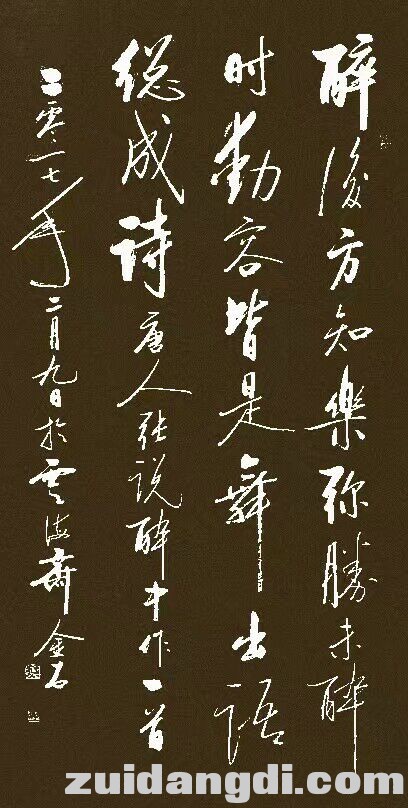 醉後方知樂弥勝未醉
时動容皆是舞出語
总成诗唐人张说醉中作一首
二零一七年二月九日於雲海斋金石
zuidangdi.com